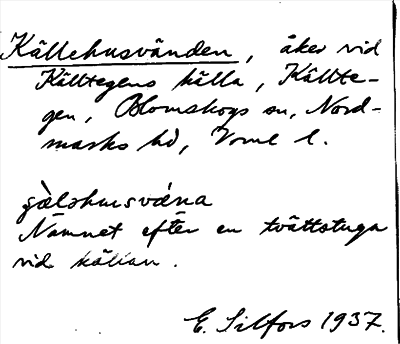 Källehusvänden, åker vid
Källtegens källa, Källte-
gen, Blomskogs sn, Nord-
marks hd, Vrml l.
g̀älǝhusvána
Namnet efter en tvättstuga
vid källan.
E. Silfors 1937.